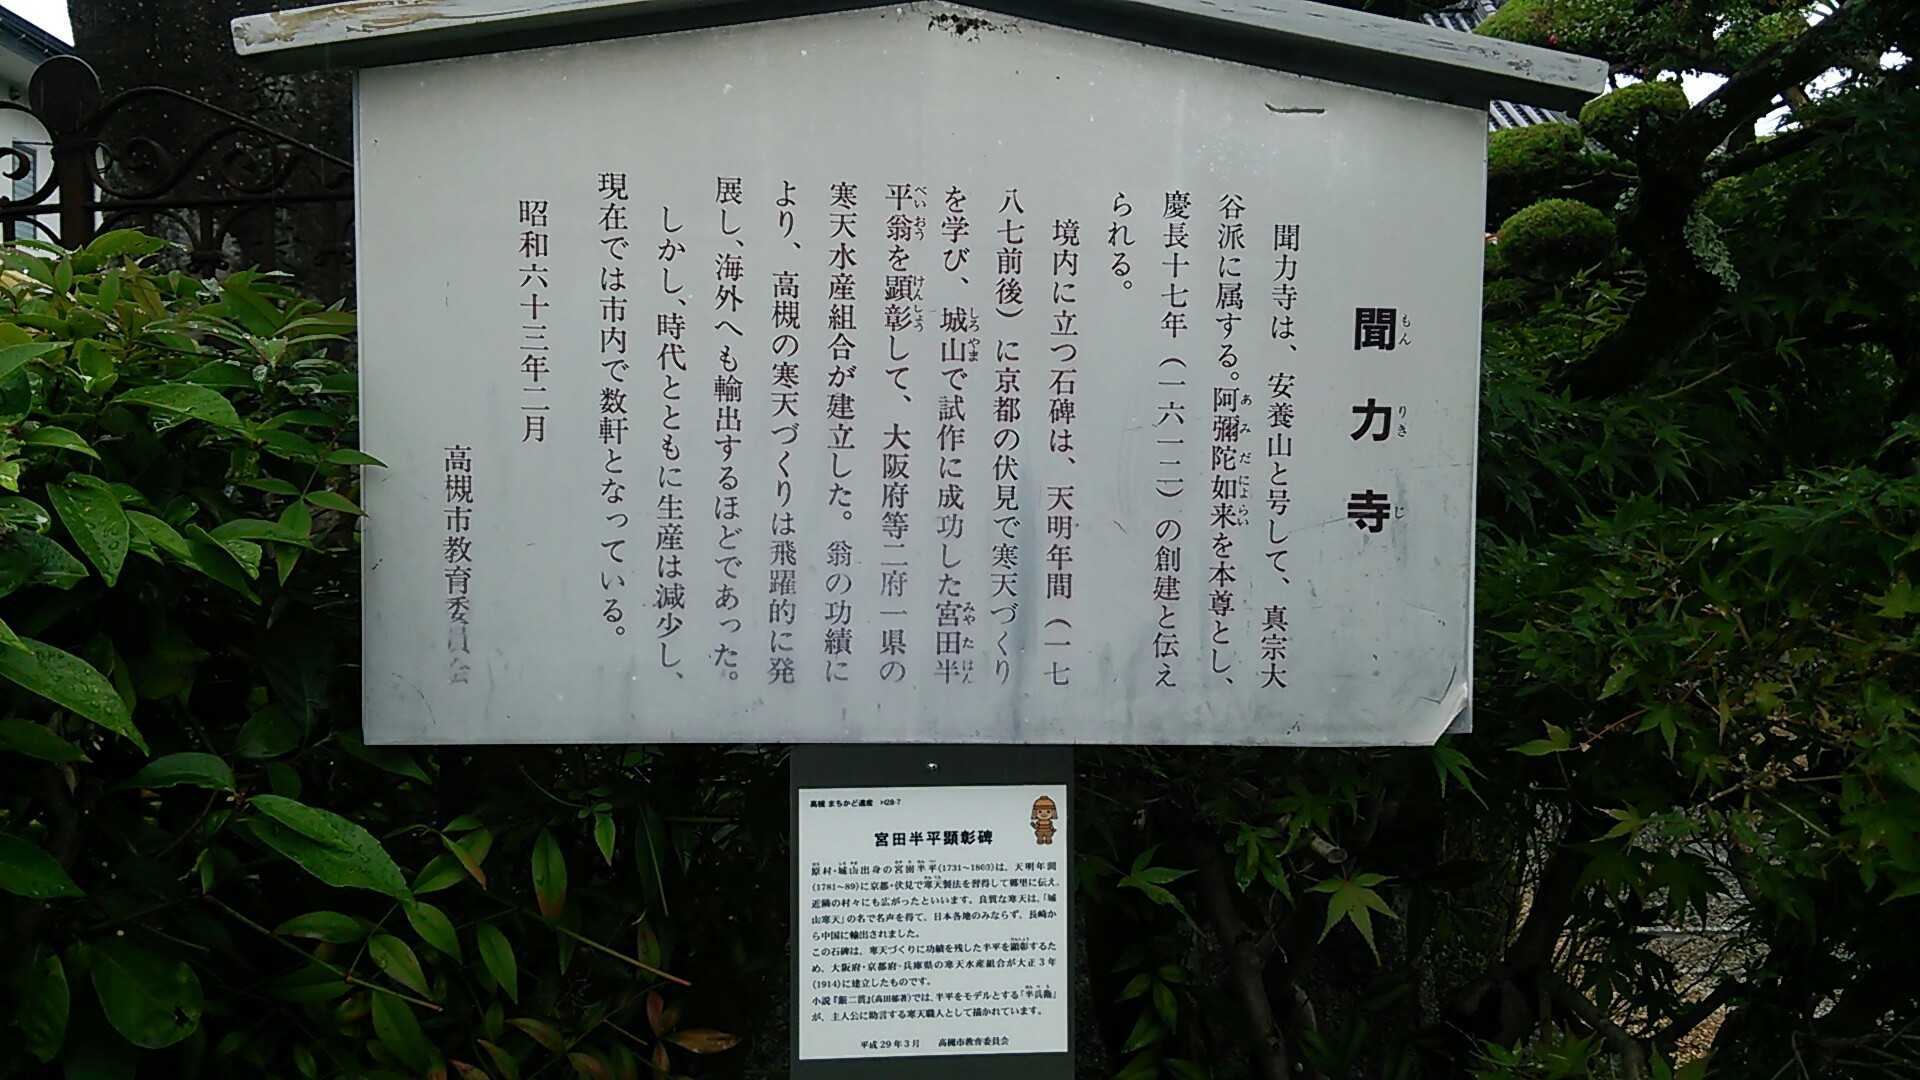 聞力寺
もんりきじ
聞力寺は、安養山と号して、真宗大
谷派に属する。阿彌陀如来を本尊とし、
あみだにょらい
慶長十七年（一六一二）の創建と伝え
られる。
境内に立つ石碑は、天明年間（一七
八七前後）に京都の伏見で寒天づくり
を学び、城山で試作に成功した宮田半
しろやま
みやたはん
平翁を顕彰して、大阪府等二府一県の
べいおう
けんしょう
寒天水産組合が建立した。翁の功績に
より、高槻の寒天づくりは飛躍的に発
展し、海外へも輸出するほどであった。
しかし、時代とともに生産は減少し、
現在では市内で数軒となっている。
昭和六十三年二月
高槻市教育委員会
高槻 まちかど遺産 H28-7
宮田半平顕彰碑
原村・城山出身の宮田半平(1731～1803)は、天明年間
(1781～89)に京都・伏見で寒天製法を習得して郷里に伝え、
近隣の村々にも広がったといいます。良質な寒天は、「城
山寒天」の名で名声を得て、日本各地のみならず、長崎か
ら中国に輸出されました。
この石碑は、寒天づくりに功績を残した半平を顕彰するた
め、大阪府・京都府・兵庫県の寒天水産組合が大正3年
(1914)に建立したものです。
小説『銀二貫』(高田郁著)では、半平をモデルとする「半兵衛」
が、主人公に助言する寒天職人として描かれています。
平成29年3月 高槻市教育委員会